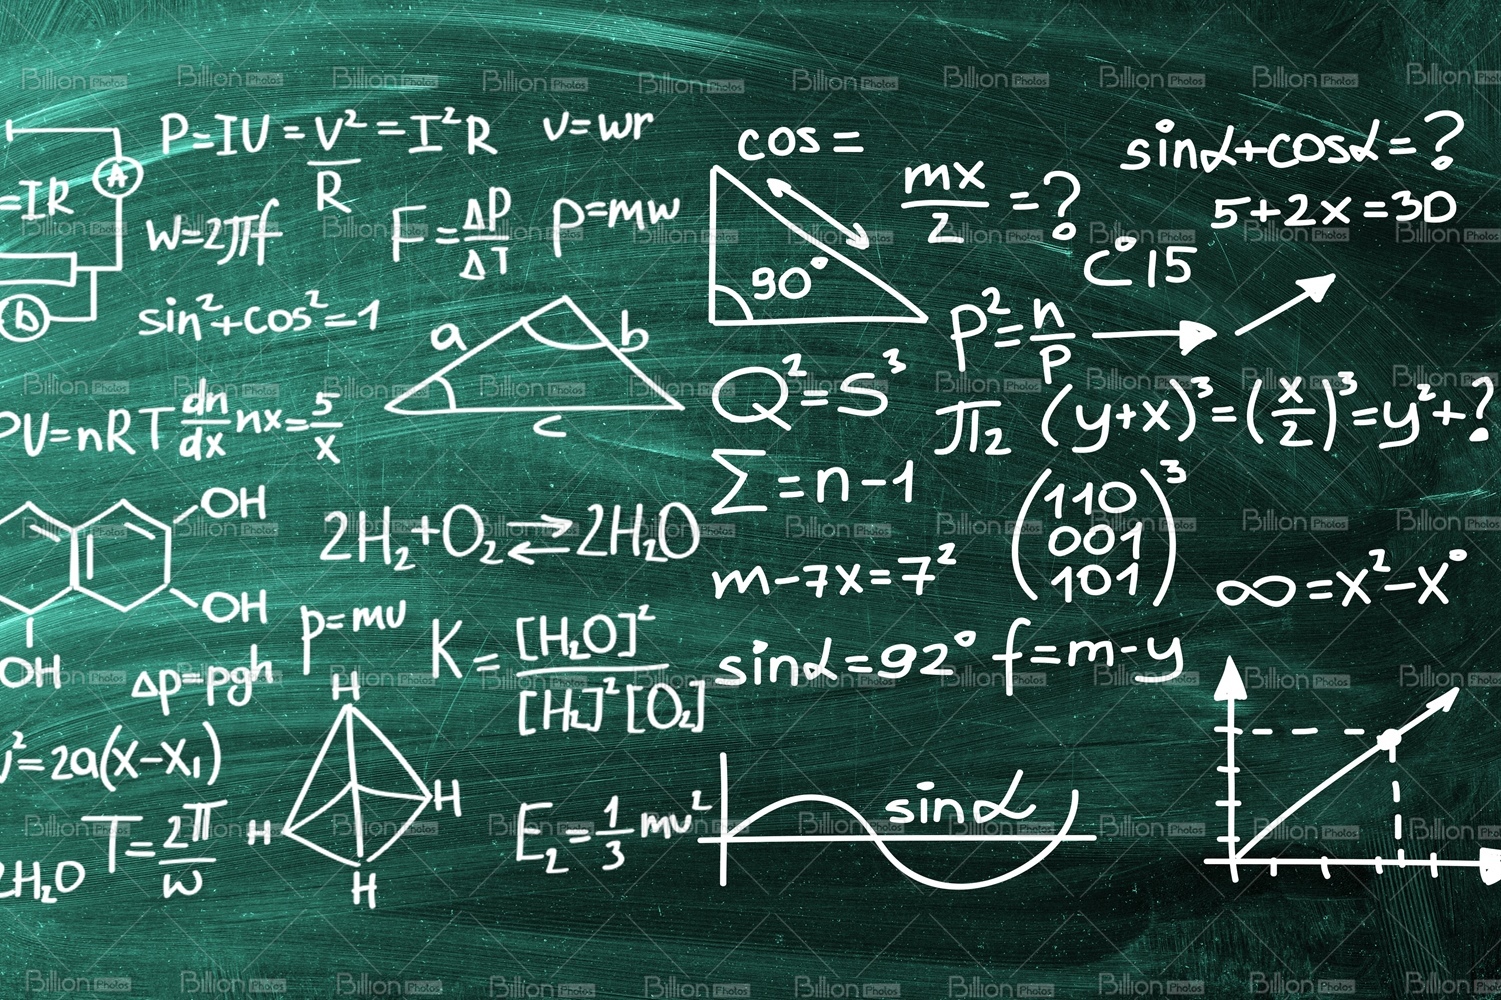 P=IU=V²/R=I²R
v=wr
A
=IR
W=2πf
F=Δp/ΔT
p=mw
b
sin²+cos²=1
a
b
c
PU=nRT dn/dx nx=5/x
OH
OH
OH
2H₂+O₂⇄2H₂O
p=mu
K=[H₂O]²/[H₂]²[O₂]
Δp=pgh
²=2a(x-x₁)
T=2π/w
2H₂O
H
H
H
H
E₂=1/3 mu²
cos=
90°
mx/2=?
sinα+cosα=?
5+2x=30
C°15
P²=n/P
Q²=S³
π₂ (y+x)³=(x/2)³=y²+?
Σ=n-1
(110
001
101)³
m-7x=7²
∞=x²-x°
sinα=92°
f=m-y
sinα
Billion Photos